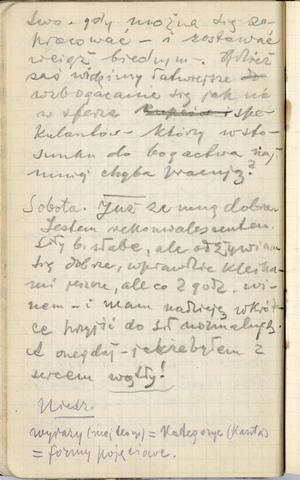 two. gdy można się za-
pracować – i zostawać
wciąż biednym. Gdzież
zaś widzimy łatwiejsze
wzbogacanie się jak nie
w sferze spe-
kulantów – którzy w sto-
sunku do bogactwa naj-
mniej chyba pracują?
Sobota. Już ze mną dobrze.
Jestem rekonwalescentem.
Siły b. słabe, ale odżywiam
się dobrze, wprawdzie kleika-
mi jeszcze, ale co 2 godz. wi-
nem – i mam nadzieję wkrót-
ce przyjść do sił normalnych.
A onegdaj – jakże byłem z
sercem wątły!
Niedz.
wyrazy (mój teren) = Kategorye (Kanta)
= formy pojęciowe.